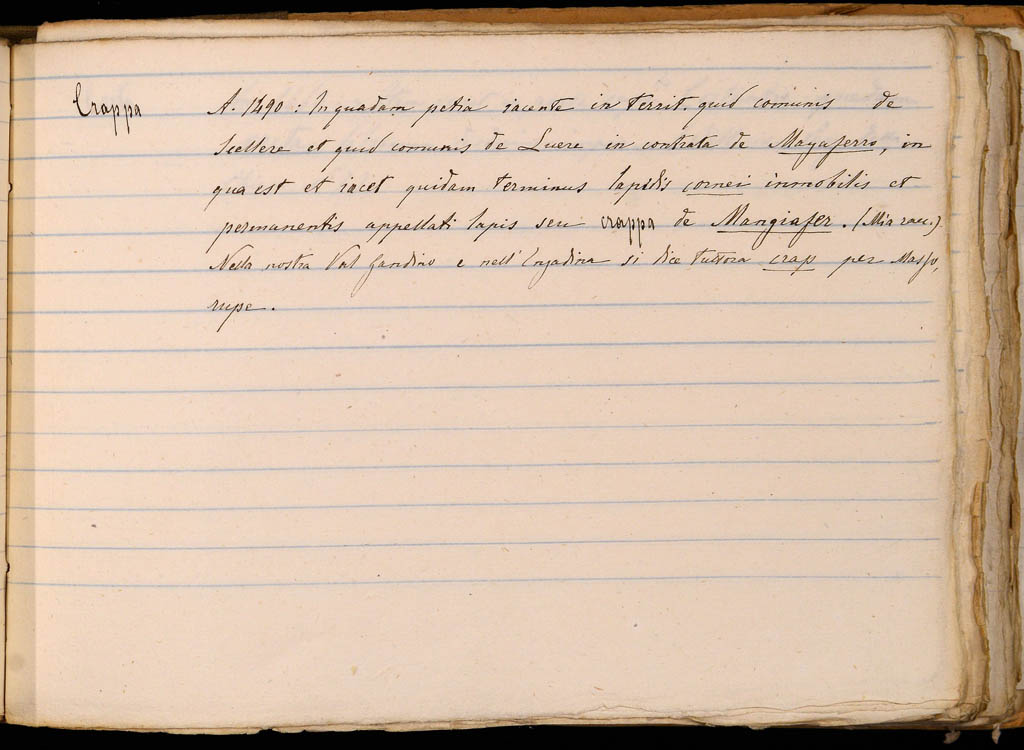 Crappa A. 1490: In quadam petia iacente in territ. quid comunis de
Scellere et quid comunis de Luere in contrata de Magnaferro, in
qua est et iacet quidam terminus lapidis cornei inmobilis et
permanentis appellati lapis seu crappa de Mangiafer. (Mia racc.).
Nella nostra Val Gandino e nell'Engadina si dice tuttora crap per Masso,
rupe.